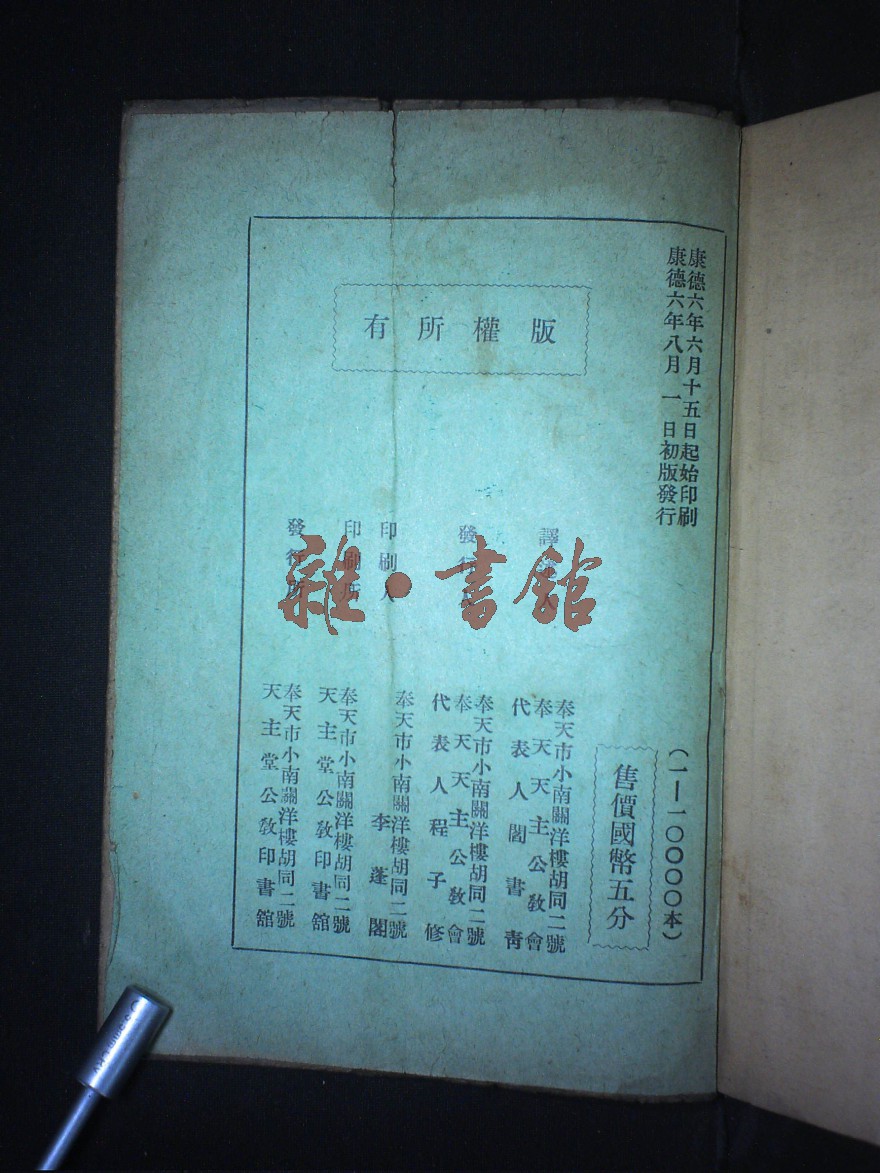 康德六年六月十五日起始印刷
康德六年八月一日初版發行
(一—一〇〇〇〇本)
版權所有
售價國幣五分
譯
奉天市小南關洋樓胡同二號
奉天天主公教會
代表人閻書靑
發行人
奉天市小南關洋樓胡同二號
奉天天主公教會
代表人程子修
印刷人
奉天市小南關洋樓胡同二號
李蓬閣
印刷所
奉天市小南關洋樓胡同二號
天主堂公教印書館
發行所
奉天市小南關洋樓胡同二號
天主堂公教印書館
雜·書館